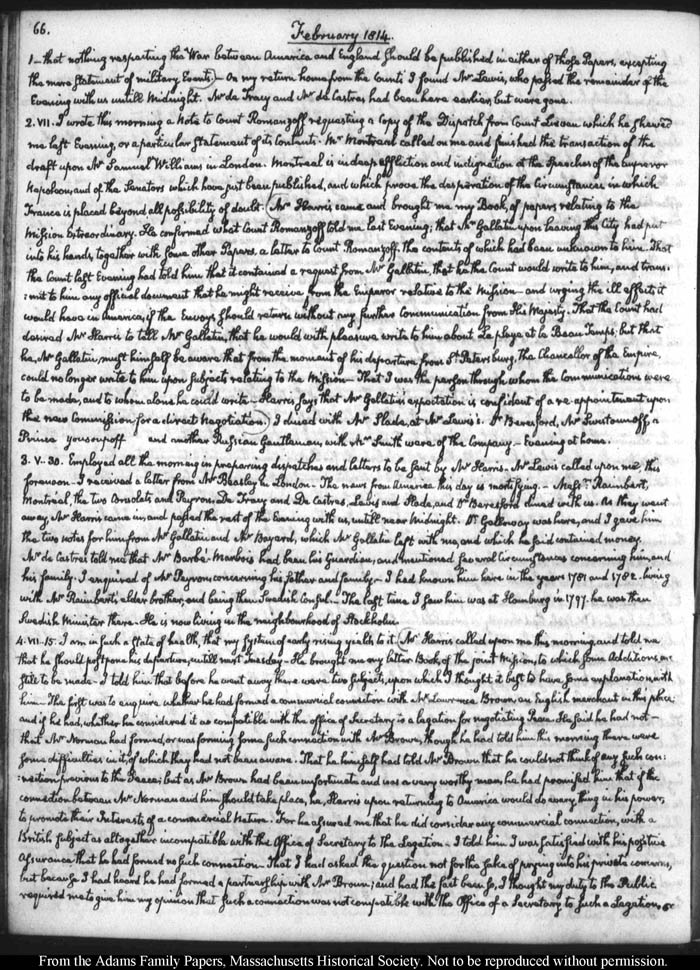 66.
February 1814.
1_ that nothing respecting the War between America and England should be published in either of those Papers, excepting
the mere statement of military Events) — On my return home from the Count's I found Mr Lewis, who passed the remainder of the
Evening with us untill Midnight. Mr de Tracy and Mr de Castres had been here earlier, but were gone.
2. VII. I wrote this morning a Note to Count Romanzoff requesting a copy of the Dispatch from Count Lieven which he shewed
me last Evening, or a particular statement of its Contents. Mr Montreal called on me and finished the transaction of the
draft upon Mr Samuel Williams in London. Montreal is in deep affliction and indignation at the Speeches of the Emperor
Napoleon, and of the Senators which have just been published, and which prove the desperation of the Circumstances in which
France is placed beyond all possibility of doubt. (Mr Harris came and brought me my Book, of papers relating to the
Mission Extraordinary. He confirmed what Count Romanzoff told me last Evening; that Mr Gallatin upon leaving this City had put
into his hands, together with some other Papers, a letter to Count Romanzoff. The contents of which had been unknown to him. That
the Count last Evening had told him that it contained a request from Mr Gallatin, that he the Count would write to him, and trans:
:mit to him any official document that he might receive from the Emperor relative to the Mission — and urging the ill effects it
would have in America, if the Envoys should return without any further Communication from His Majesty. That the Count had
desired Mr Harris to tell Mr Gallatin, that he would with pleasure write to him about La pluye et le Beau Temps; but that
he, Mr Gallatin, must himself be aware that from the moment of his departure from St. Petersburg, the Chancellor of the Empire,
could no longer write to him upon subjects relating to the Mission — That I was the person through whom the Communications were
to be made, and to whom alone he could write — Harris says that Mr Gallatin's expectation is confident of a re-appointment upon
the new Commission for a direct Negotiation.) I dined with Mr Slade, at Mr Lewis's. Dr Beresford, Mr Swetounoff, a
Prince Yousoupoff and another Russian Gentleman, with Mr Smith were of the Company — Evening at home.
3. V-30. Employed all the morning in preparing dispatches and letters to be sent by Mr Harris. Mr Lewis called upon me, this
forenoon. I received a letter from Mr Beasley in London. The news from America this day is mortifying. — Messrs Raimbert,
Montreal, the two Osvolats and Peyron, De Tracy and De Castres, Lewis and Slade, and Dr Beresford dined with us. As they went
away, Mr Harris came in and passed the rest of the Evening with us, untill near Midnight. Dr Galloway was here, and I gave him
the two notes for him from Mr Gallatin and Mr Bayard, which Mr Gallatin left with me, and which he said contained money.
Mr de Castres told me that Mr Barbé-Marbois had been his Guardian; and mentioned several Circumstances concerning him, and
his family. I enquired of Mr Peyron concerning his father and family — I had known him here in the years 1781 and 1782. living
with Mr Raimbert's elder brother, and being then Swedish Consul. The last time I saw him was at Hamburg in 1797. he was then
Swedish Minister there. He is now living in the neighbourhood of Stockholm.
4. VII-15. I am in such a state of health, that my system of early rising yields to it. (Mr Harris called upon me this morning, and told me
that he should postpone his departure, untill next Tuesday. He brought me my letter Book, of the joint Mission; to which some Additions are
still to be made. I told him that before he went away there were two subjects, upon which I thought it best to have some explanation with
him. The first was to enquire whether he had formed a commercial connection with Mr Lawrence Brown, an English merchant in this place;
and if he had, whether he considered it as compatible with the office of Secretary to a legation for negotiating Peace. He said he had not —
that Mr Norman had formed, or was forming some such connection with Mr Brown, though he had told him this morning there were
some difficulties in it, of which they had not been aware. That he himself had told Mr Brown that he could not think of any such con:
:nection previous to the Peace; but as Mr Brown had been unfortunate and was a very worthy man, he had promised him that if the
connection between Mr Norman and him should take place, he, Harris upon returning to America would do every thing in his power,
to promote their Interests of a commercial Nature. For he assured me that he did consider any commercial connection, with a
British subject as altogether incompatible with the Office of Secretary to the Legation. I told him I was satisfied with his positive
assurance that he had formed no such connection. That I had asked the question not for the sake of prying into his private concerns,
but because I had heard he had formed a partnership with Mr Brown; and had the fact been so, I thought my duty to the Public
required me to give him my opinion that such a connection was not compatible with the Office of a Secretary to such a Legation, &c
From the Adams Family Papers, Massachusetts Historical Society. Not to be reproduced without permission.